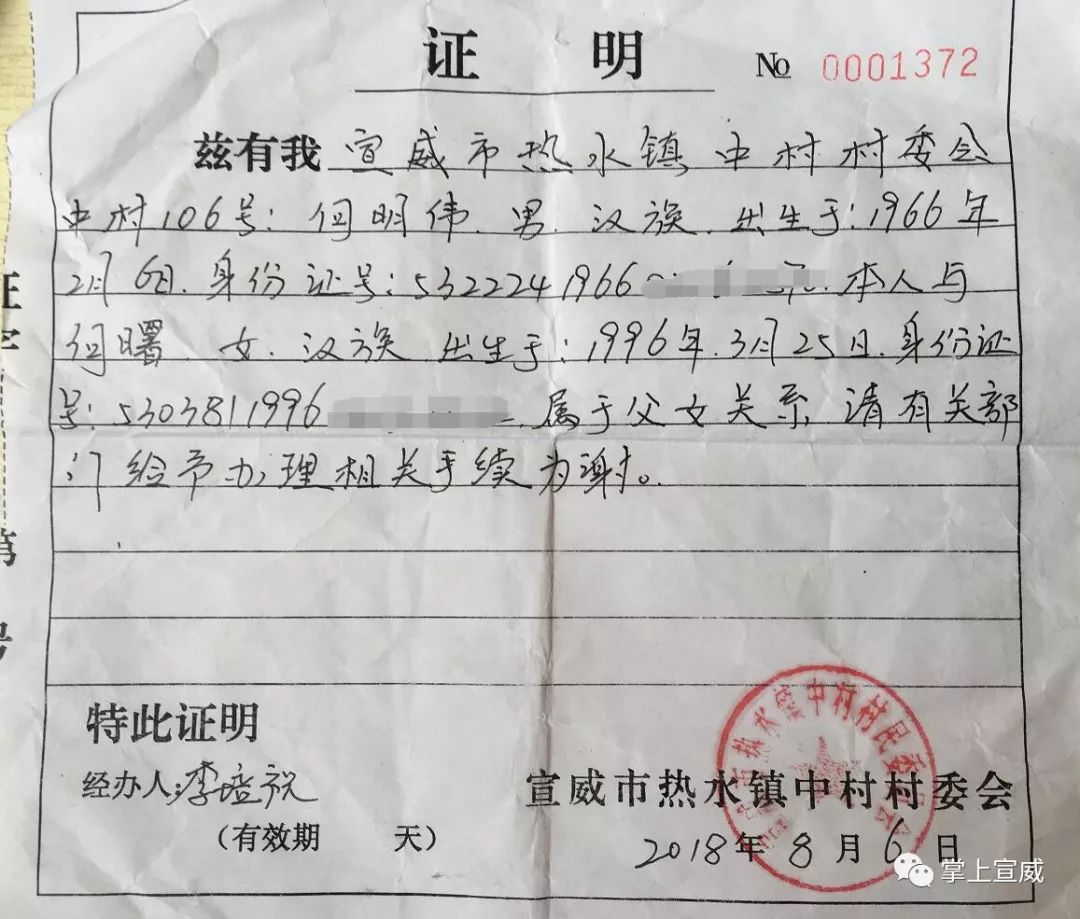 证 明 No 0001372
兹有我宣威市热水镇中村村委会
中村106号:何明伟.男.汉族.出生于:1966年
2月6日.身份证号:5322241966 本人与
何曙.女.汉族.出生于:1996年.3月25日.身份证
号:5303811996 属于父女关系,请有关部
门给予办理相关手续为谢。
特此证明
经办人:李 祝
宣威市热水镇中村村委会
(有效期 天)
2018年8月6日
热水镇中村村民委
第
号
掌上宣威